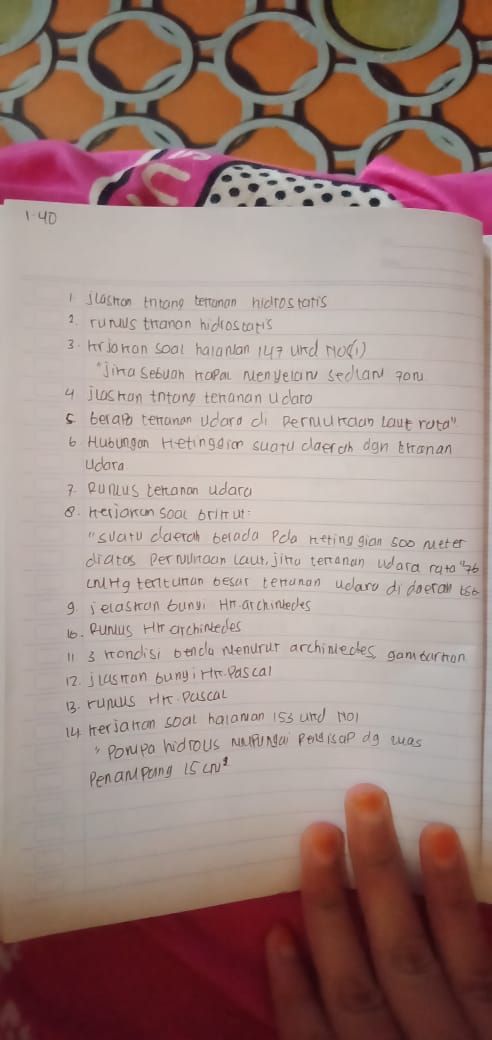 1-40
1 jlaskan tntang tekanan hidrostatis
2. rumus tkanan hidrostatis
3. krjakan soal halaman 147 und no(1)
"jika sebuah kapal menyelam sedlam 70m
4 jlaskan tntang tekanan udara
5. berapa tekanan udara di permukaan laut rata"
6 Hubungan ketinggian suatu daerah dgn tkanan
udara
7. Rumus tekanan udara
8. kerjakan soal brikut:
"suatu daerah berada pda ketinggian 500 meter
diatas permukaan laut, jika tekanan udara rata "76
cmHg tentukan besar tekanan udara di daerah tsb
9. jelaskan bunyi Hk.archimedes
10. Rumus Hk archimedes
11 3 kondisi benda menurut archimedes, gambarkan
12. jlaskan bunyi Hk.Pascal
13. rumus Hk.Pascal
14 kerjakan soal halaman 153 und no1
" Pompa hidrolis mmpunyai pengisap dg luas
penampang 15 cm²